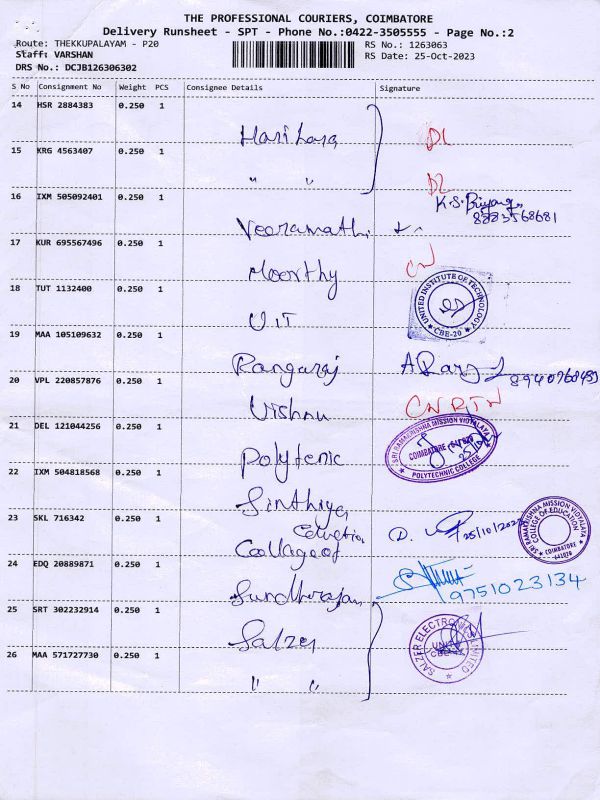 THE PROFESSIONAL COURIERS, COIMBATORE
Delivery Runsheet - SPT - Phone No.:0422-3505555 - Page No.:2
Route: THEKKUPALAYAM - P20
RS No.: 1263063
Staff: VARSHAN
RS Date: 25-Oct-2023
DRS No.: DCJB126306302
S No Consignment No Weight PCS Consignee Details Signature
14 HSR 2884383 0.250 1
Harihara D1
15 KRG 4563407 0.250 1
" " D2
16 IXM 505092401 0.250 1
K.S. Priyanga
8883568681
Veeramathi
17 KUR 695567496 0.250 1
Moorthy CN
18 TUT 1132400 0.250 1
UIT
UNITED INSTITUTE OF TECHNOLOGY
* CBE-20 *
19 MAA 105109632 0.250 1
Rangaraj
20 VPL 220857876 0.250 1
Vishnu CN RTN
21 DEL 121044256 0.250 1
Polytenic
SRI RAMAKRISHNA MISSION VIDYALAYA
COIMBATORE - 641020
POLYTECHNIC COLLEGE
22 IXM 504818568 0.250 1
Sinthiya
23 SKL 716342 0.250 1
Education
Collage of
25/10/2023
SRI RAMAKRISHNA MISSION VIDYALAYA
COLLEGE OF EDUCATION
* COIMBATORE *
641020
24 EDQ 20889871 0.250 1
Sundharajan 9751023134
25 SRT 302232914 0.250 1
Salzer
SALZER ELECTRONICS LIMITED
26 MAA 571727730 0.250 1
" "